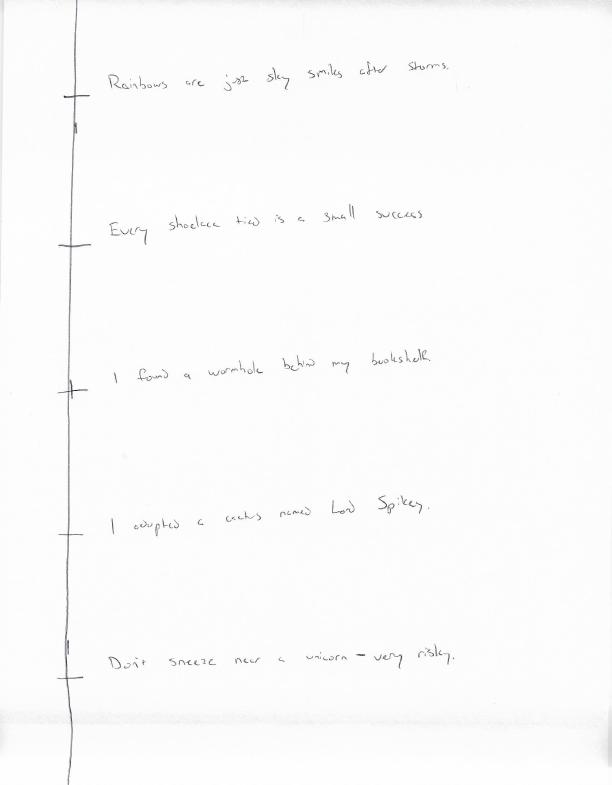 Rainbows are just sky smiles after storms.
Every shoelace tied is a small success
I found a wormhole behind my bookshelf.
I adopted a cactus named Lord Spikey.
Don't sneeze near a unicorn – very risky.